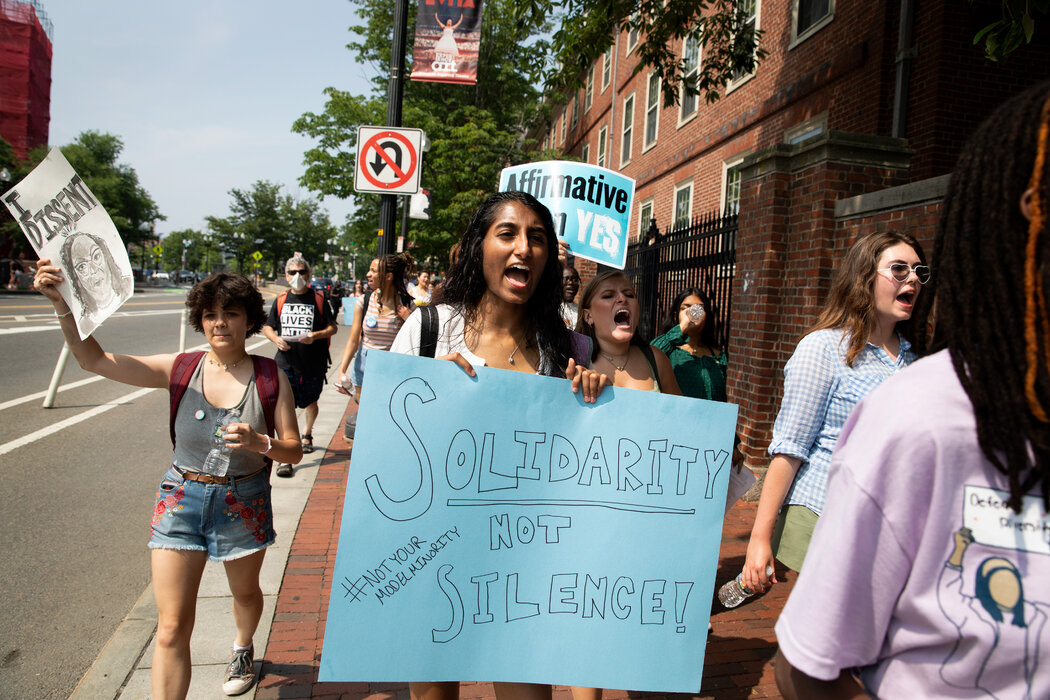 I DISSENT
BLACK
LIVES
MATTER
Affirmative
YES
SOLIDARITY
NOT
SILENCE!
#NOTYOUR
MODELMINORITY
Diversity